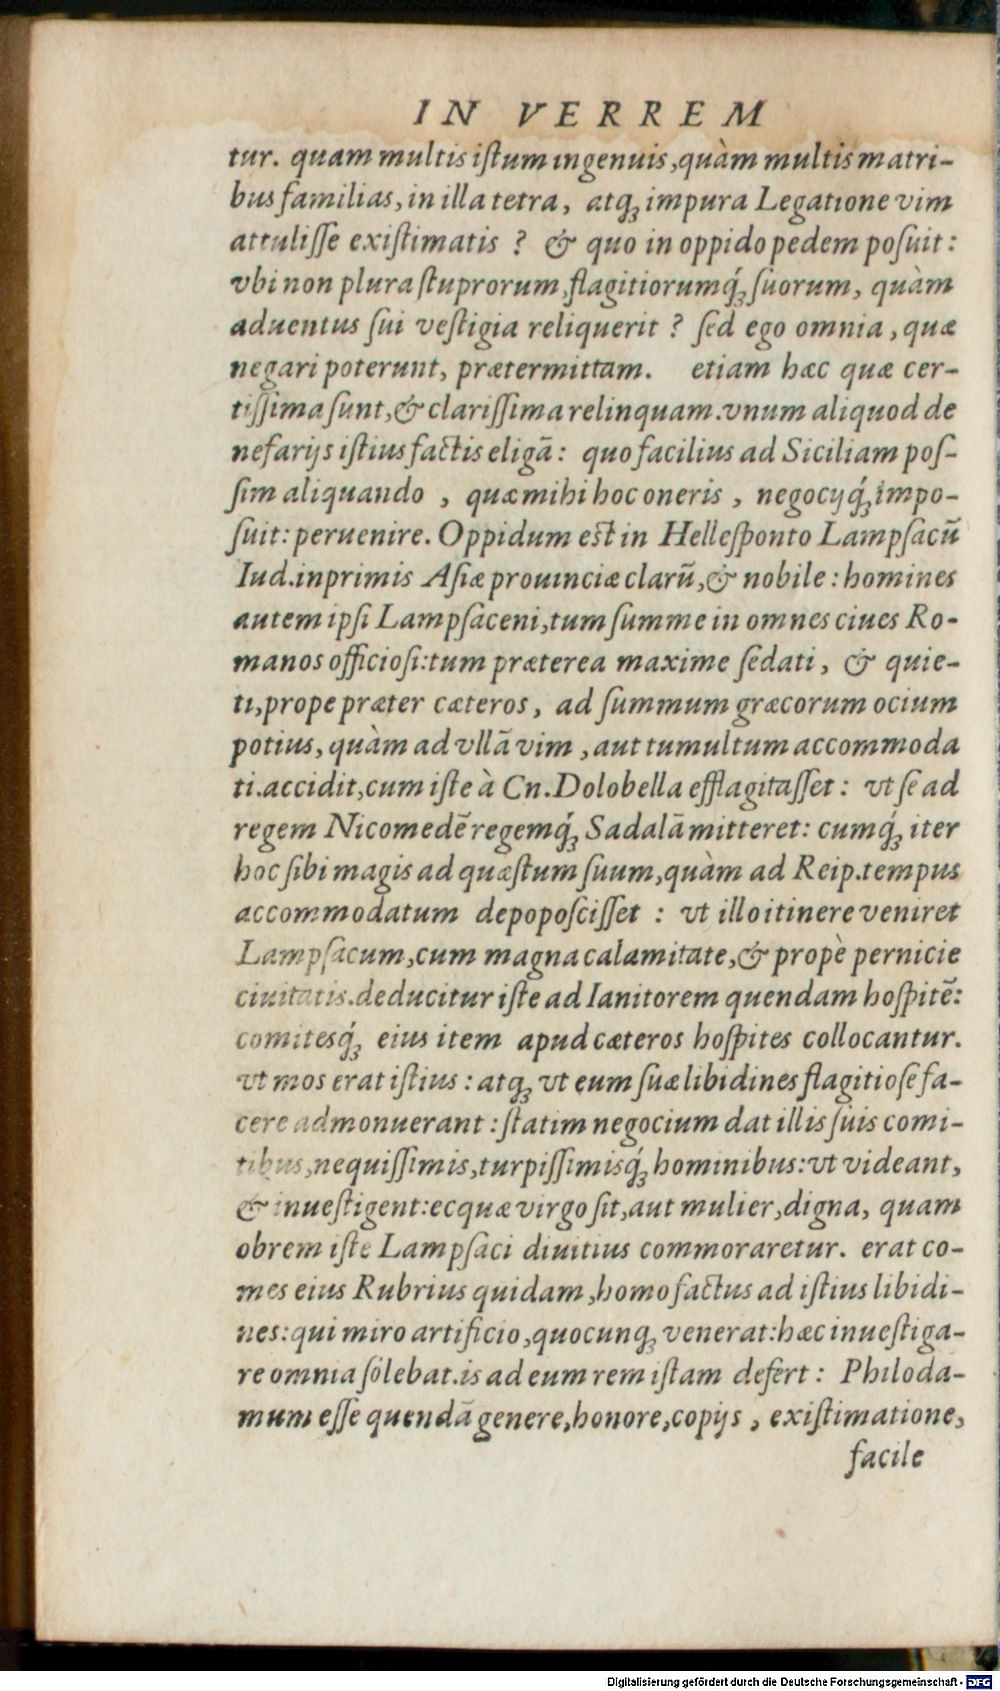 IN VERREM
tur. quam multis iſtum ingenuis, quàm multis matri-
bus familias, in illa tetra, atq; impura Legatione vim
attuliſſe exiſtimatis ? & quo in oppido pedem poſuit:
vbi non plura ſtuprorum, flagitiorumq́; ſuorum, quàm
aduentus ſui veſtigia reliquerit ? ſed ego omnia, quæ
negari poterunt, prætermittam. etiam hæc quæ cer-
tiſſima ſunt, & clariſſima relinquam. vnum aliquod de
nefarijs iſtius factis eligā: quo facilius ad Siciliam poſ-
ſim aliquando , quæ mihi hoc oneris , negocijq́; impo-
ſuit: peruenire. Oppidum est in Helleſponto Lampſacū
Iud. inprimis Aſiæ prouinciæ clarū, & nobile: homines
autem ipſi Lampſaceni, tum ſumme in omnes ciues Ro-
manos officioſi: tum præterea maxime ſedati, & quie-
ti, prope præter cæteros, ad ſummum græcorum ocium
potius, quàm ad vllā vim , aut tumultum accommoda
ti. accidit, cum iſte à Cn. Dolobella efflagitaſſet: vt ſe ad
regem Nicomedē regemq́; Sadalā mitteret: cumq́; iter
hoc ſibi magis ad quæſtum ſuum, quàm ad Reip. tempus
accommodatum depopoſciſſet : vt illo itinere veniret
Lampſacum, cum magna calamitate, & propè pernicie
ciuitatis. deducitur iſte ad Ianitorem quendam hoſpitē:
comitesq́; eius item apud cæteros hoſpites collocantur.
vt mos erat iſtius: atq; vt eum ſuæ libidines flagitioſe fa-
cere admonuerant: ſtatim negocium dat illis ſuis comi-
tibus, nequiſſimis, turpiſſimisq́; hominibus: vt videant,
& inueſtigent: ecquæ virgo ſit, aut mulier, digna, quam
obrem iſte Lampſaci diuitius commoraretur. erat co-
mes eius Rubrius quidam, homo factus ad iſtius libidi-
nes: qui miro artificio, quocunq; venerat: hæc inueſtiga-
re omnia ſolebat. is ad eum rem iſtam defert: Philoda-
mum eſſe quendā genere, honore, copijs , exiſtimatione,
facile
Digitalisierung gefördert durch die Deutsche Forschungsgemeinschaft - DFG